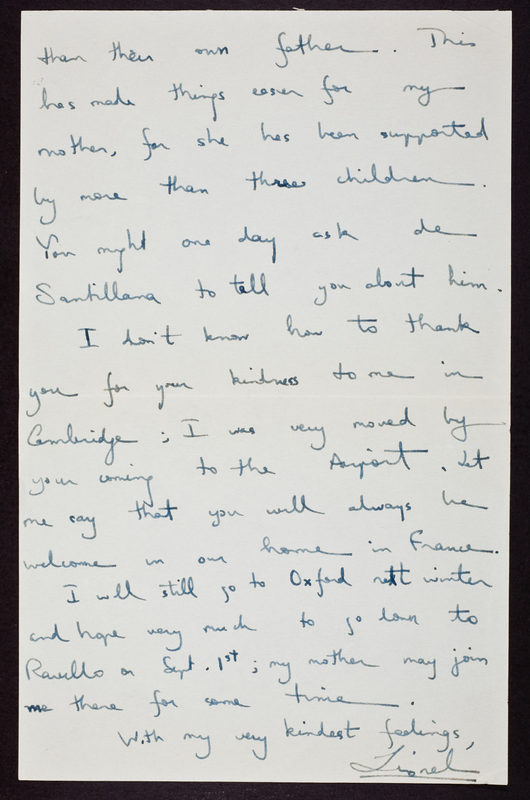 than their own father. This
has made things easier for my
mother, for she has been supported
by more than three children.
You might one day ask de
Santillana to tell you about him.
I don't know how to thank
you for your kindness to me in
Cambridge; I was very moved by
your coming to the Airport. Let
me say that you will always be
welcome in our home in France.
I will still go to Oxford next winter
and hope very much to go down to
Ravello on Sept. 1st; my mother may join
me there for some time.
With my very kindest feelings,
Lionel